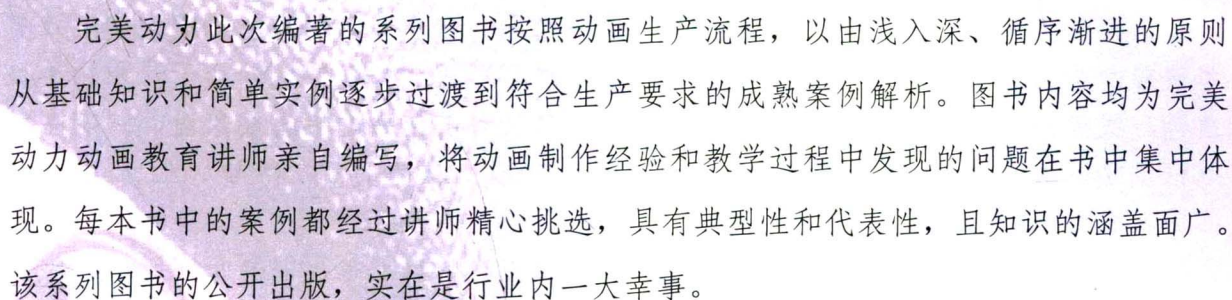 完美动力此次编著的系列图书按照动画生产流程，以由浅入深、循序渐进的原则
从基础知识和简单实例逐步过渡到符合生产要求的成熟案例解析。图书内容均为完美
动力动画教育讲师亲自编写，将动画制作经验和教学过程中发现的问题在书中集中体
现。每本书中的案例都经过讲师精心挑选，具有典型性和代表性，且知识的涵盖面广。
该系列图书的公开出版，实在是行业内一大幸事。